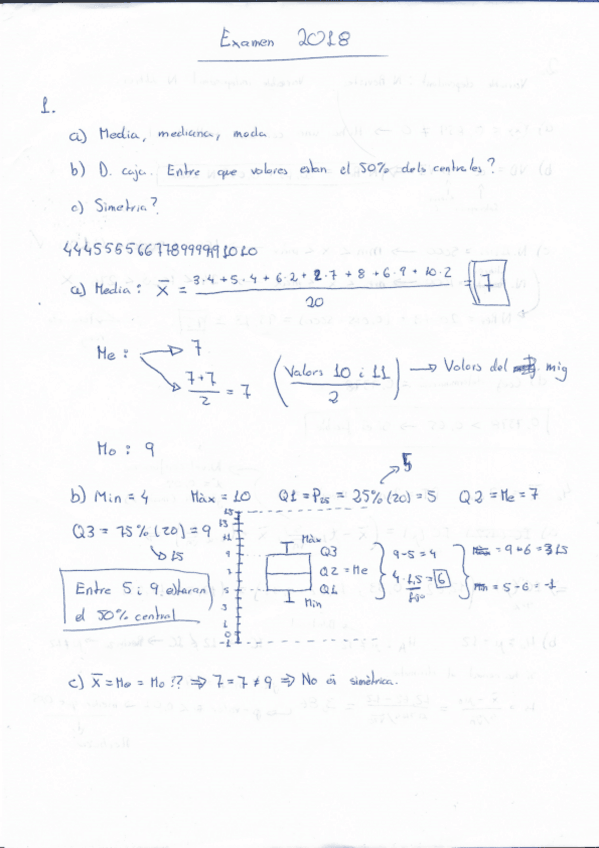 Examen 2018
1.
a) Media, mediana, moda
b) D. caja. Entre que valores estan el 50% dels centrales?
c) Simetria?
4445556667789999991010
a) Media: X̄ = 3·4+5·4+6·2+2·7+8+6·9+10·2 / 20 = 7
Me: → 7
→ 7+7 / 2 = 7 (Valors 10 i 11 / 2) → Valors del mig
Mo: 9
5
b) Min = 4 Màx = 10 Q1 = P25 = 25% (20) = 5 Q2 = Me = 7
Q3 = 75% (20) = 9
15
15
13
11
9
7
5
3
1
0
-1
Màx
Q3
Q2 = Me
Q1
Min
9-5 = 4
4·1,5 = 6
= 9+6 = 15
= 5-6 = -1
Entre 5 i 9 estaran
el 50% central
c) X̄ = Me = Mo!? ⇒ 7 = 7 ≠ 9 ⇒ No és simètrica.